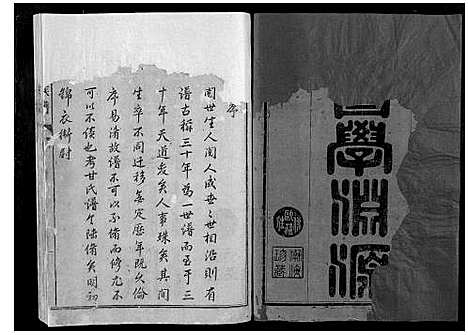 學淵源
序
閱世生人閱人成世之世相沿則有
譜古稱三十年為一世譜而至于三
十年天道變矣人事殊矣其間
生卒不同迁移無定歷年既久倫
序易淆故譜不可以不修而修尤不
可以不慎也考甘氏譜今陸備矣明初
錦衣衛尉